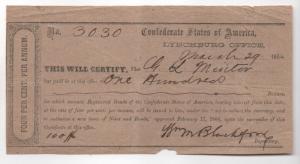 FOUR PER CENT PER ANNUM
No. 3030
Confederate States of America,
LYNCHBURG OFFICE,
March 29 1864
THIS WILL CERTIFY, That
has paid in at this office One Hundred
Dollars,
for which amount Registered Bonds of the Confederate States of America, bearing interest from this date,
at the rate of four per cent. per annum, will be issued to him, under the "act to reduce the currency, and
to authorize a new issue of Notes and Bonds," approved February 17, 1864, upon the surrender of this
Certificate at this office.
100
Wm M Blackford
Depositary.